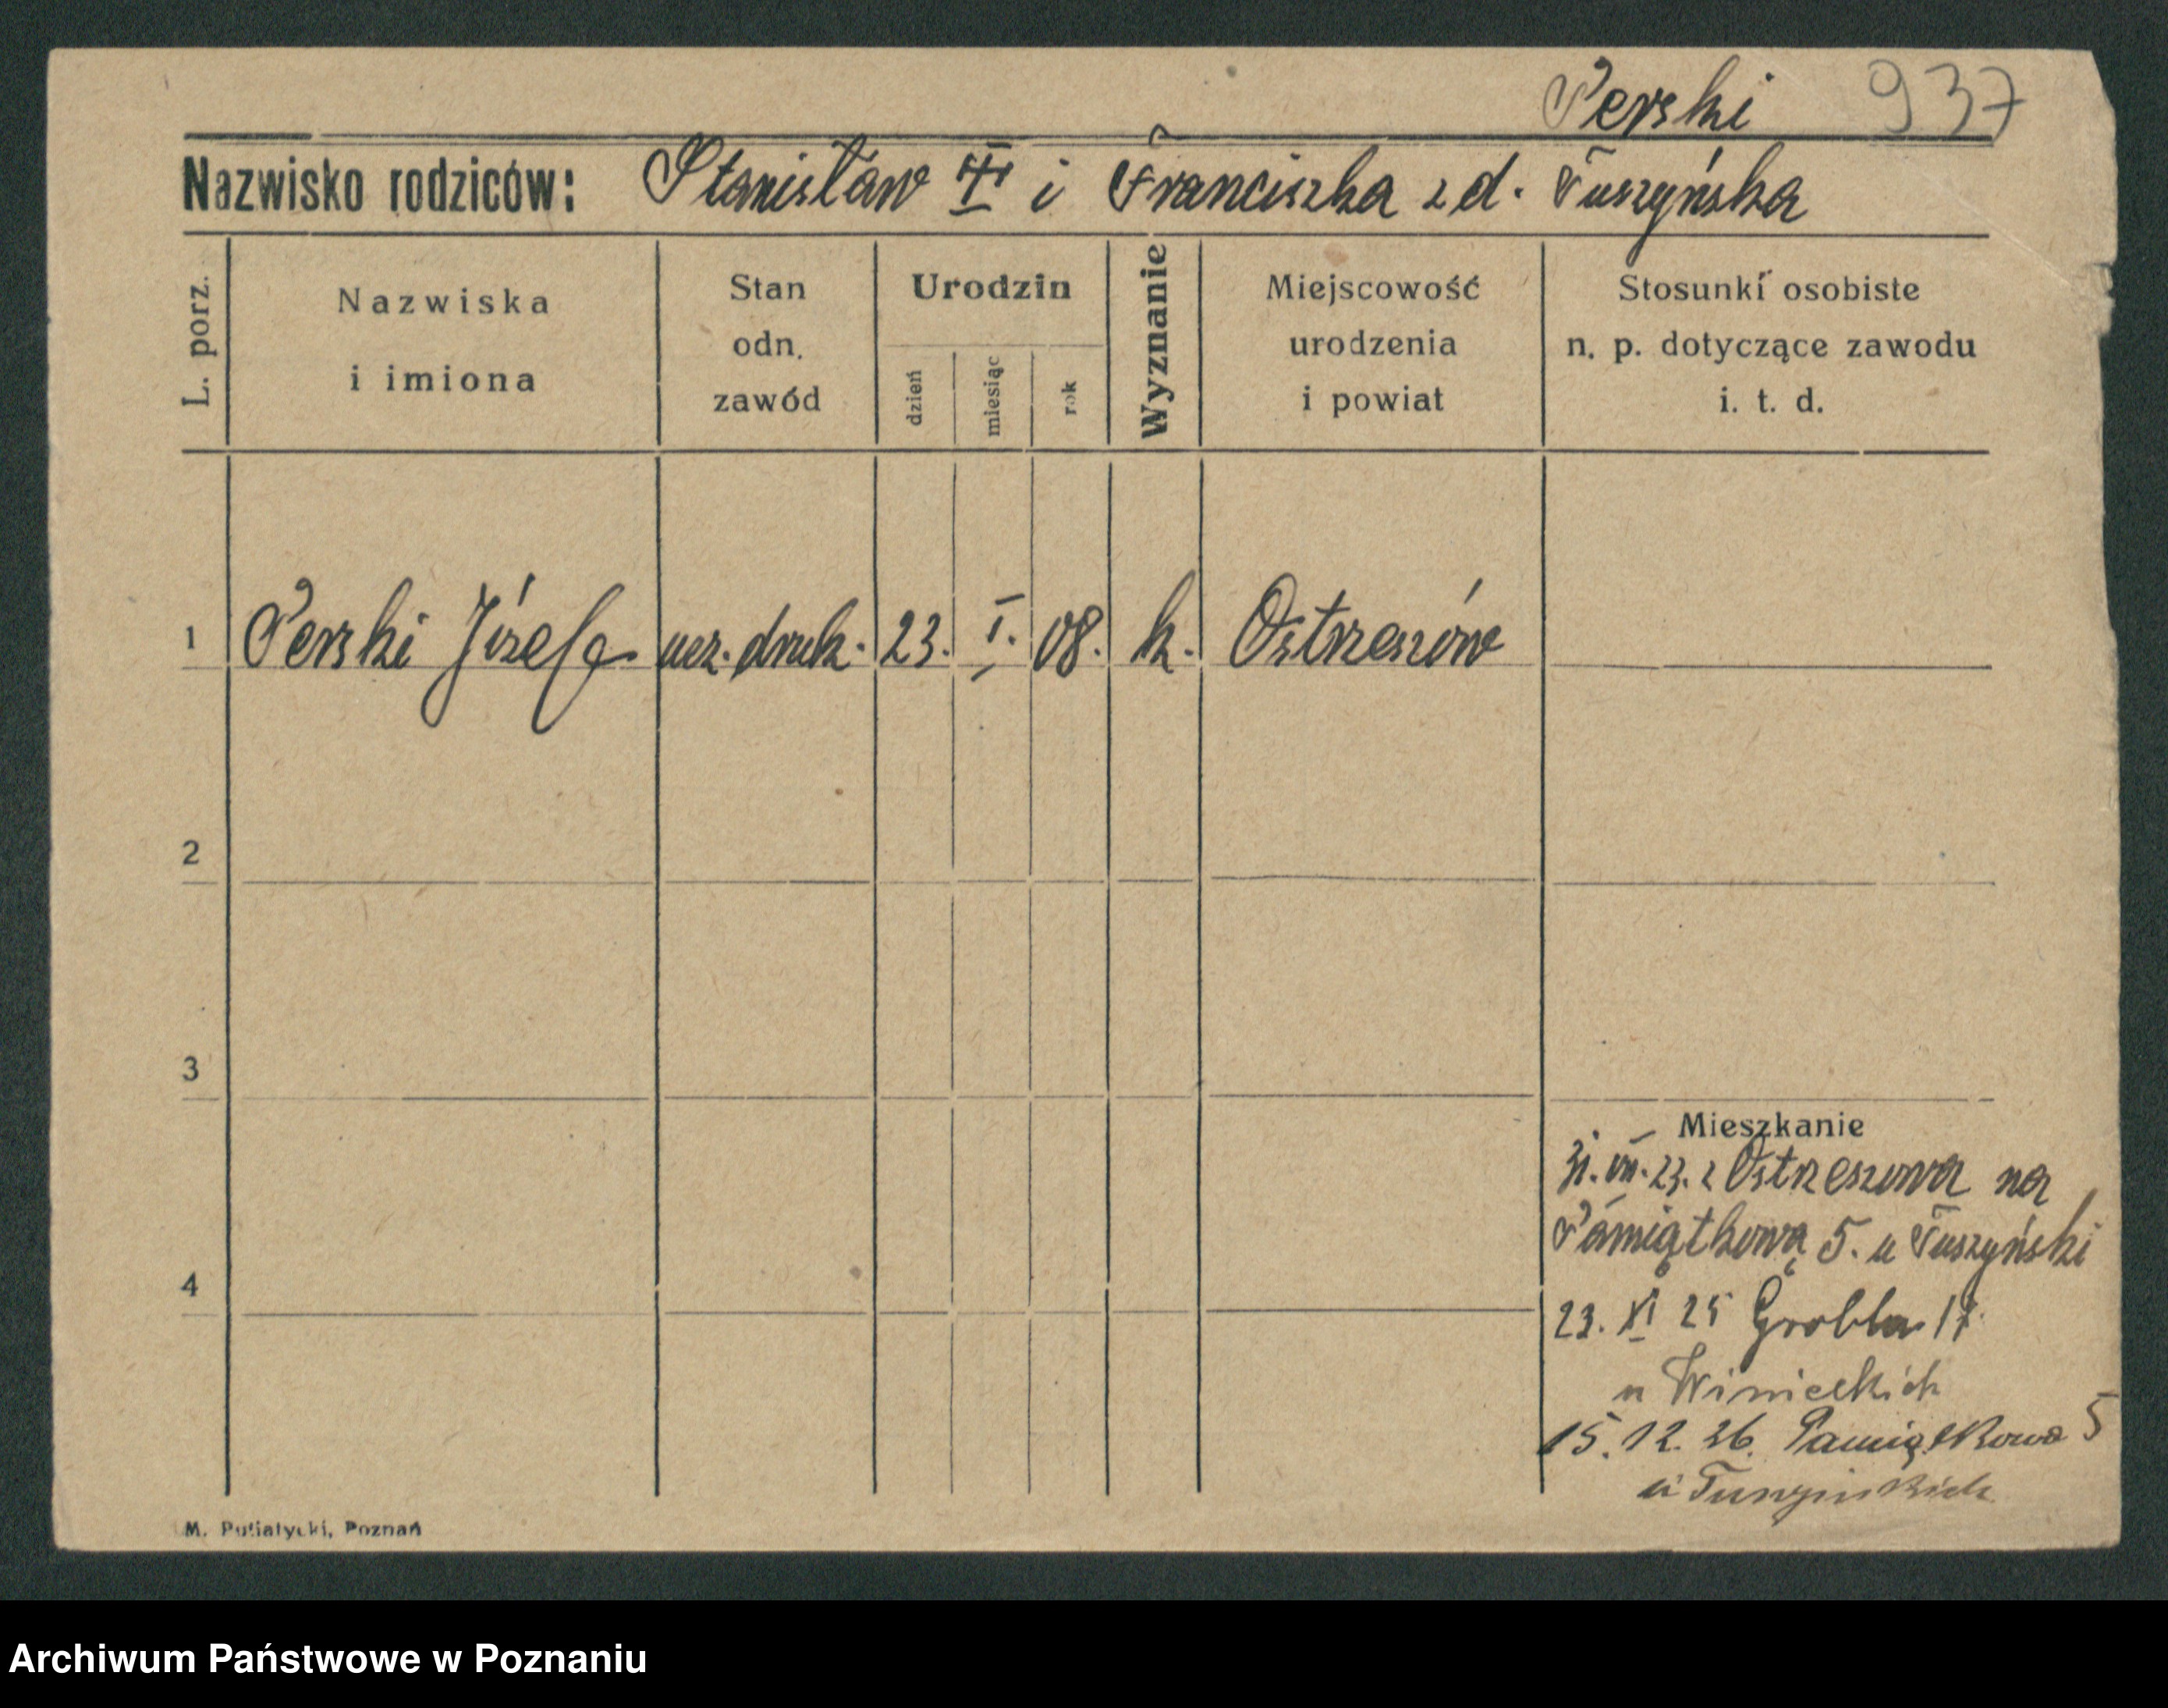 Perski 937
Nazwisko rodziców: Stanisław i Franciszka z d. Tuszyńska
L. porz.
Nazwiska i imiona
Stan odn. zawód
Urodzin
dzień
miesiąc
rok
Wyznanie
Miejscowość urodzenia i powiat
Stosunki osobiste n. p. dotyczące zawodu i. t. d.
1 Perski Józef ucz. druk. 23. I. 08. k. Ostrzeszów
2
3
4
Mieszkanie
31. VII. 23. z Ostrzeszowa na
Pamiątkową 5. u Tuszyński
23. XI 25 Grobla 17
u Winieckich
15. 12. 26. Pamiątkowa 5
u Tuszyńskich
M. Putiatycki, Poznań
Archiwum Państwowe w Poznaniu